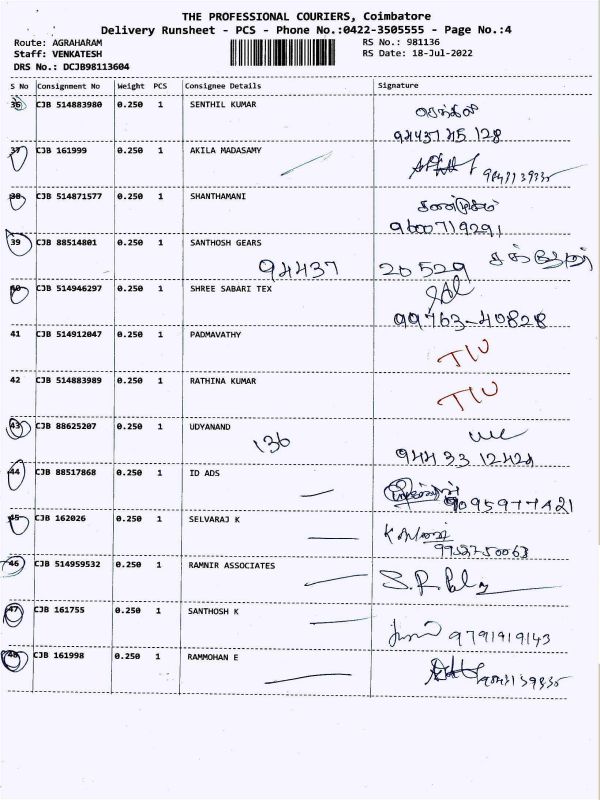 THE PROFESSIONAL COURIERS, Coimbatore
Delivery Runsheet - PCS - Phone No.:0422-3505555 - Page No.:4
Route: AGRAHARAM RS No.: 981136
Staff: VENKATESH RS Date: 18-Jul-2022
DRS No.: DCJB98113604
S No Consignment No Weight PCS Consignee Details Signature
36 CJB 514883980 0.250 1 SENTHIL KUMAR செந்தில்
94437 45 128
37 CJB 161999 0.250 1 AKILA MADASAMY
38 CJB 514871577 0.250 1 SHANTHAMANI
9600719291
39 CJB 88514801 0.250 1 SANTHOSH GEARS
94437 20529
40 CJB 514946297 0.250 1 SHREE SABARI TEX
99763-40828
41 CJB 514912047 0.250 1 PADMAVATHY
42 CJB 514883989 0.250 1 RATHINA KUMAR
43 CJB 88625207 0.250 1 UDYANAND
136 944 33 12421
44 CJB 88517868 0.250 1 ID ADS
45 CJB 162026 0.250 1 SELVARAJ K
9752750063
46 CJB 514959532 0.250 1 RAMNIR ASSOCIATES
47 CJB 161755 0.250 1 SANTHOSH K
9791919143
48 CJB 161998 0.250 1 RAMMOHAN E